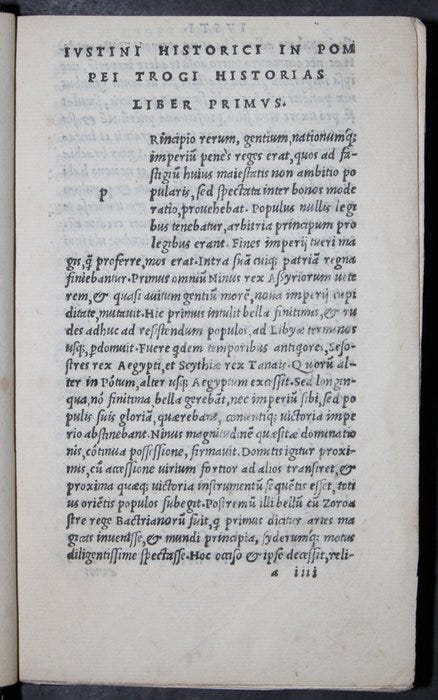 IVSTINI HISTORICI IN POM
PEI TROGI HISTORIAS
LIBER PRIMVS.
p Rincipio rerum, gentium, nationumq́;
imperiũ penès reges erat, quos ad fa-
stigiũ huius maiestatis non ambitio po
pularis, sed spectata inter bonos mode
ratio, prouehebat. Populus nullis legi
bus tenebatur, arbitria principum pro
legibus erant. Fines imperij tueri ma
gis, q̃ proferre, mos erat. Intra suã cuiq; patriã regna
finiebantur. Primus omniũ Ninus rex Assyriorum uete
rem, & quasi auitum gentiũ morẽ, noua imperij cupi
ditate, mutauit. Hic primus intulit bella finitimis, & ru
des adhuc ad resistendum populos, ad Libyae terminos
usq;, ꝑdomuit. Fuere qdem temporibus antiqores, Seso-
stres rex Aegypti, et Scythiæ rex Tanais. Quorũ al-
ter in Põtum, alter usq; Aegyptum excessit. Sed longin-
qua, nõ finitima bella gerebãt, nec imperiũ sibi, sed po
pulis suis gloriã, quærebant, contentiq; uictoria impe
rio abstinebant. Ninus magnitudinẽ quæsitæ dominatio
nis, cõtinua possessione, firmauit. Domitis igitur proxi-
mis, cũ accessione uirium fortior ad alios transiret, &
proxima quæq; uictoria instrumentũ sequẽtis esset, toti
us oriẽtis populos subegit. Postremũ illi bellũ cũ Zoroa
stre rege Bactrianorũ fuit, q primus dicitur artes ma
gicas inuenisse, & mundi principia, syderumq́; motus
diligentissime spectasse. Hoc occiso & ipse decessit, reli-
a iiii